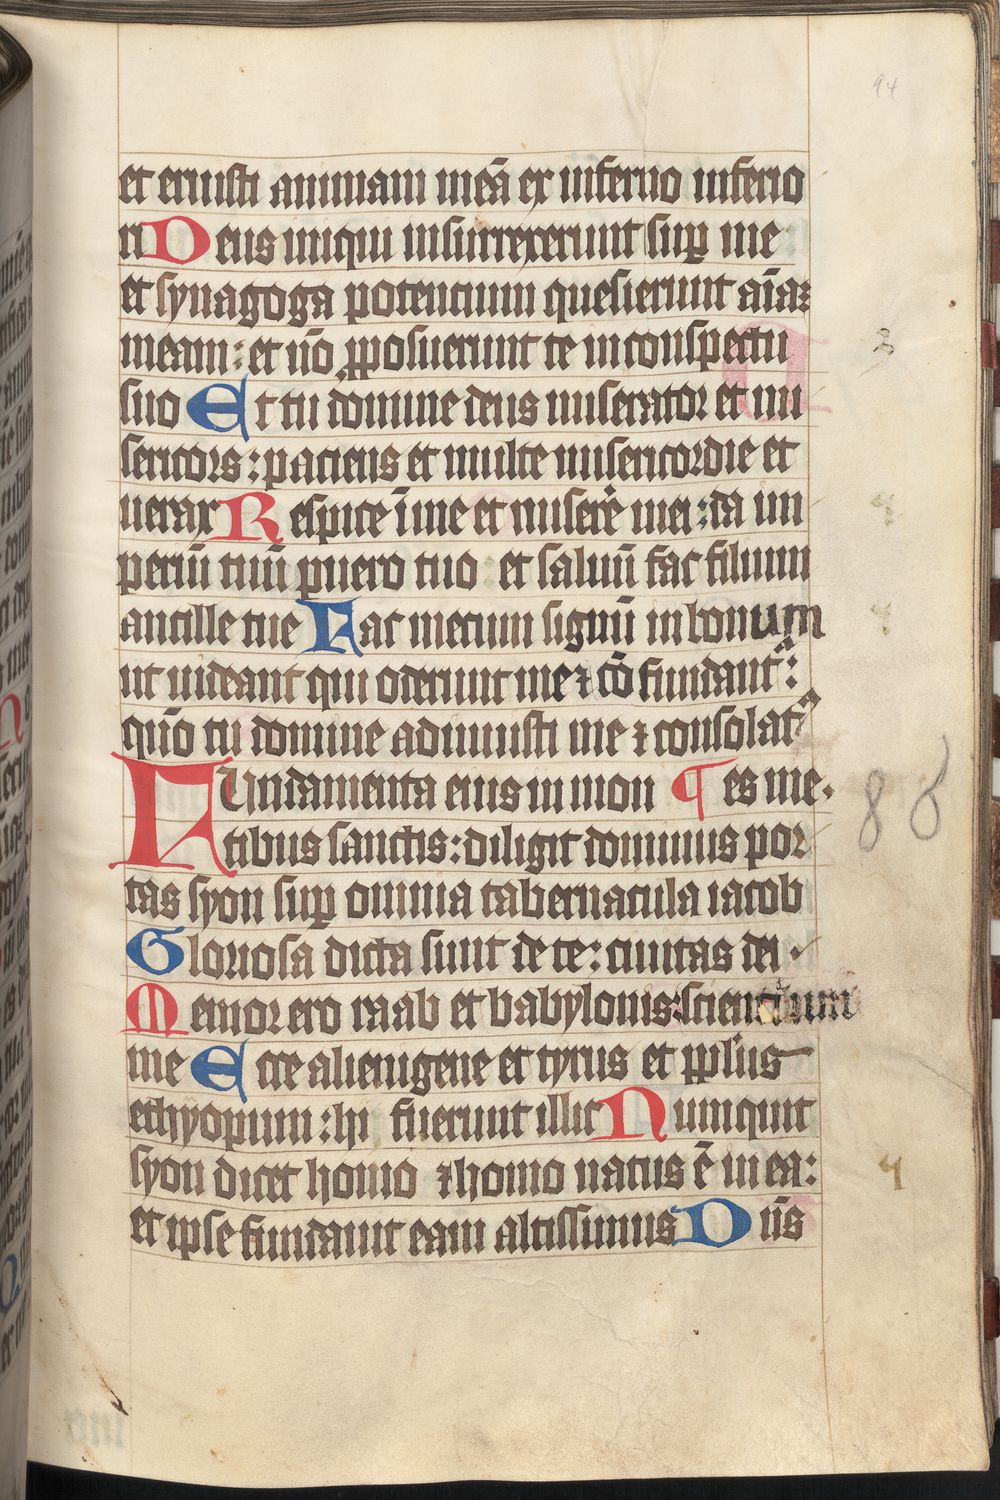 94
et eruisti animam meā ex inferno inferio
ri Deus iniqui insurrexerunt suꝑ me
et synagoga potentium quesierunt aīaꝫ
meam: et nō ꝓposuerunt te in conspectu
suo Et tu domine deus miserator et mi
sericors: paciens et multe misericordie et
uerax Respice ī me et miserē mei: da im
periū tuū puero tuo et saluū fac filium
ancille tue Fac mecum signū in bonum
ut uideant qui oderunt me ⁊ cō fundantᷣ:
quō tu domine adiuuisti me ⁊ consolatᷣ
Fundamenta eius in mon ¶ es me.
tibus sanctis: diligit dominus por
tas syon suꝑ omnia tabernacula iacob
Gloriosa dicta sunt de te: ciuitas dei
Memor ero raab et babylonis: scientium
me Ecce alienigene et tyrus et ppl̄us
ethyopum: hi fuerunt illic Numquit
syon dicet homo ⁊ homo natus ē in ea:
et ipse fundauit eam altissimus Dn̄s
86